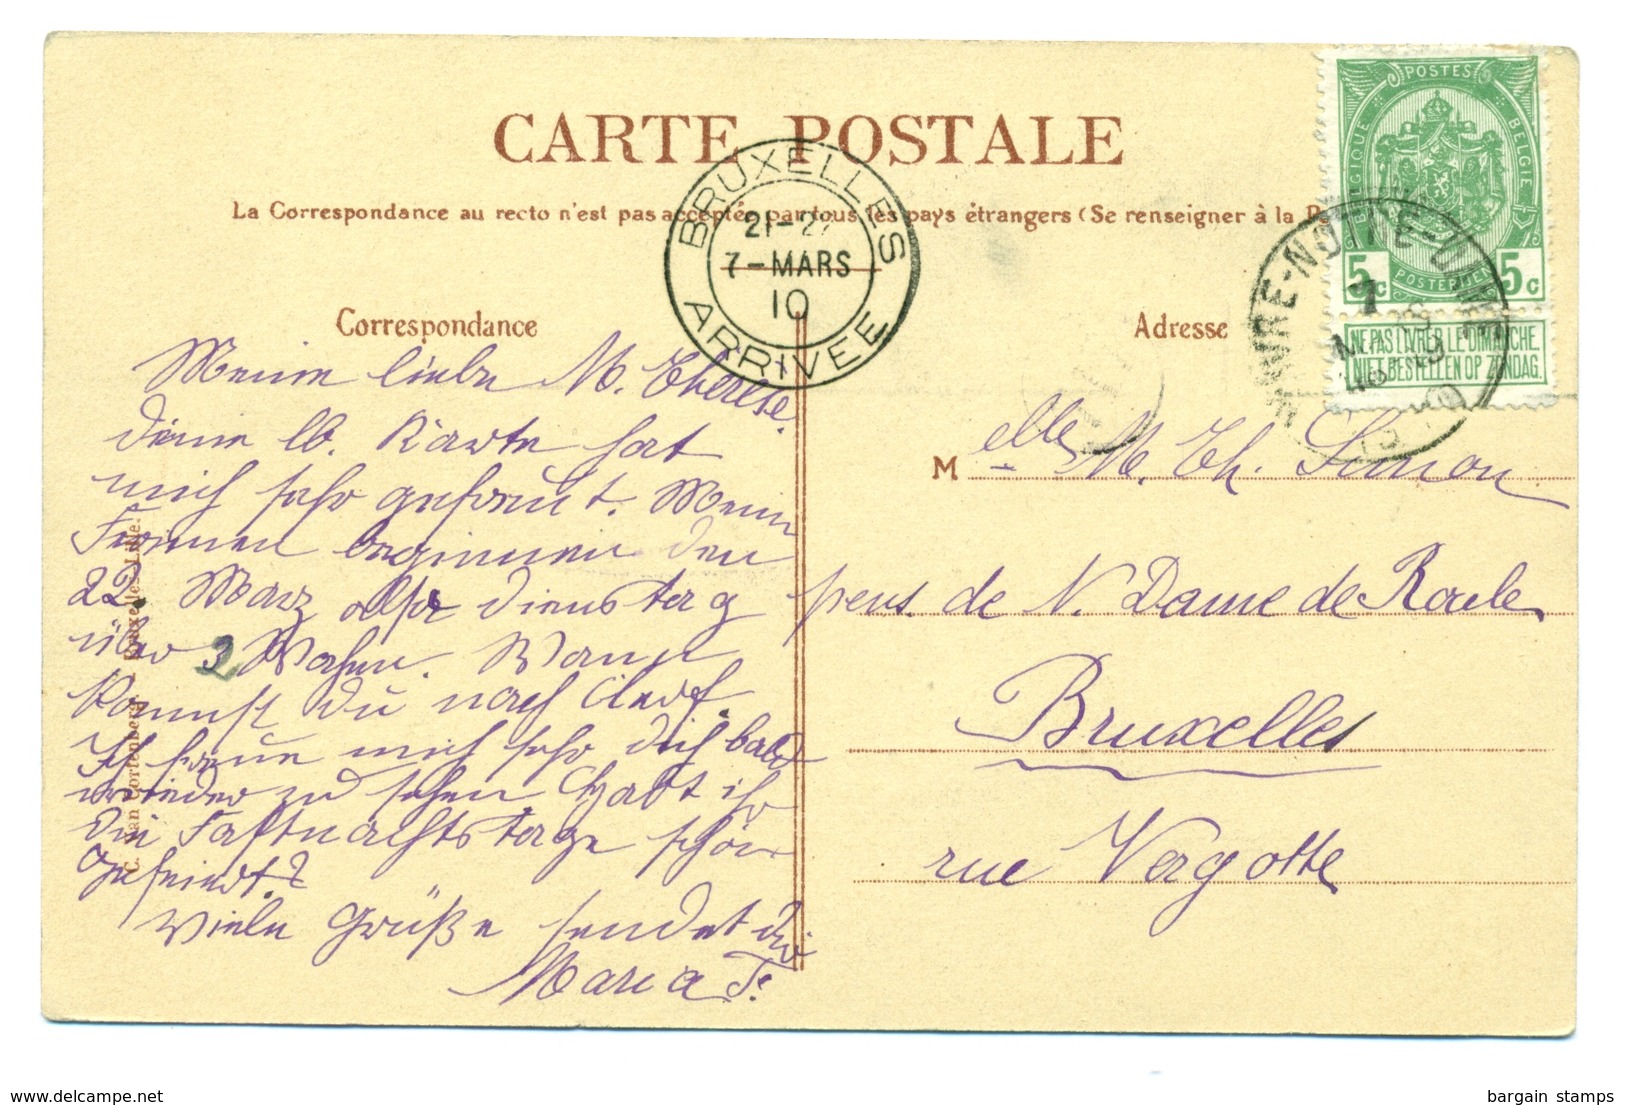 CARTE POSTALE
La Correspondance au recto n'est pas acceptée par tous les pays étrangers (Se renseigner à la P
BRUXELLES
21-2
7-MARS
10
ARRIVEE
POSTES
BELGIQUE BELGIE
POSTERIJEN
5c 5c
NE PAS LIVRER LE DIMANCHE.
NIET BESTELLEN OP ZONDAG.
WAVRE-NOTRE-DAME
7
10
Correspondance
Meine liebe M. Therese.
Deine lb. Karte hat
mich sehr gefreut. Meine
Ferien beginnen den
22. März also Dienstag
über 2 Wochen. Wann
kommst Du nach
Ich freue mich sehr dich bald
wieder zu sehen. Habt ihr
die Fastnachtstage schön
gefeiert?
Viele Grüße sendet dir
Maria
Adresse
M elle M. Th. Simon
pens. de N. Dame de
Bruxelles
rue Vergotte
Bruxelles-Lille.
delcampe.net
bargain stamps